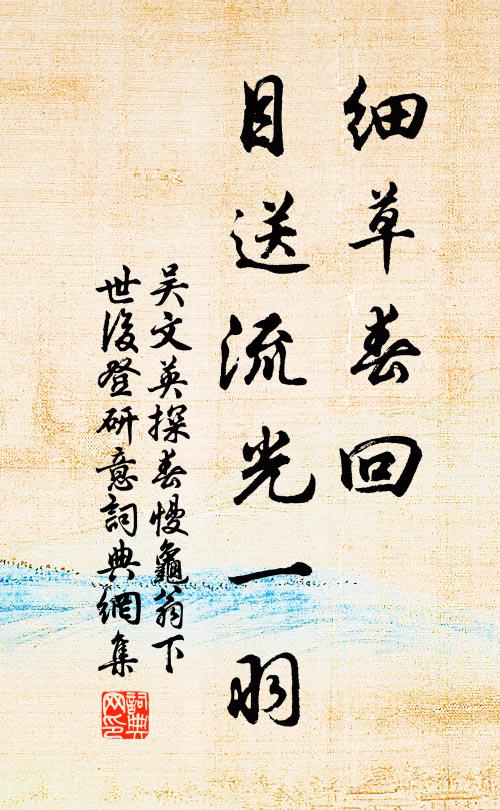 细草春回
目送流光一羽
吴文英探春慢龜翁下
世後登研意詞典網集
詞典
网印